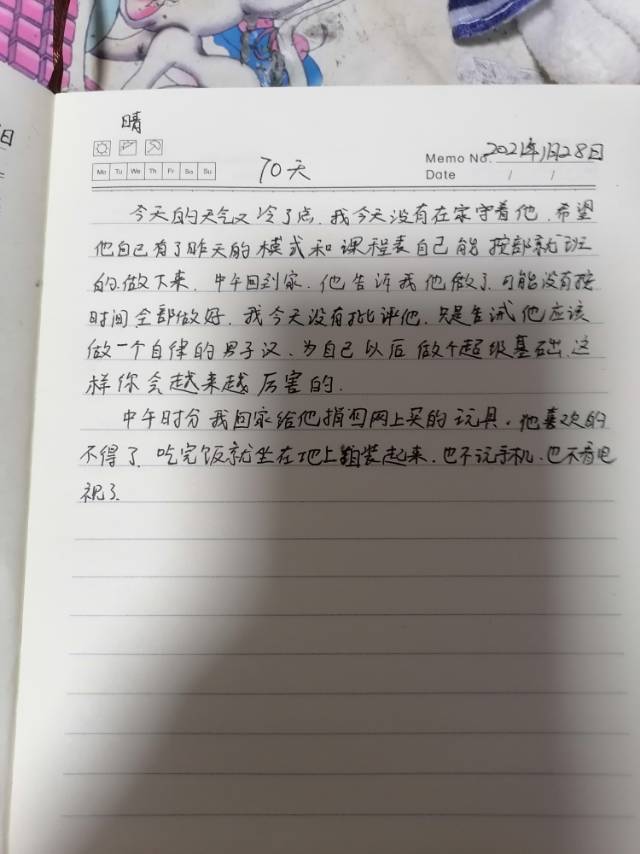 日
晴
Memo No. 2021年1月28日
Mo Tu We Th Fr Sa Su
70天
Date / /
今天的天气又冷了点,我今天没有在家守着他,希望
他自己有了昨天的模式和课程表自己能按部就班
的做下来,中午回到家,他告诉我他做了,可能没有按
时间全部做好,我今天没有批评他,只是告诫他应该
做一个自律的男子汉、为自己以后做个超级基础,这
样你会越来越厉害的.
中午时分我回家给他捎回网上买的玩具,他喜欢的
不得了,吃完饭就坐在地上组装起来,也不玩手机,也不看电
视了.